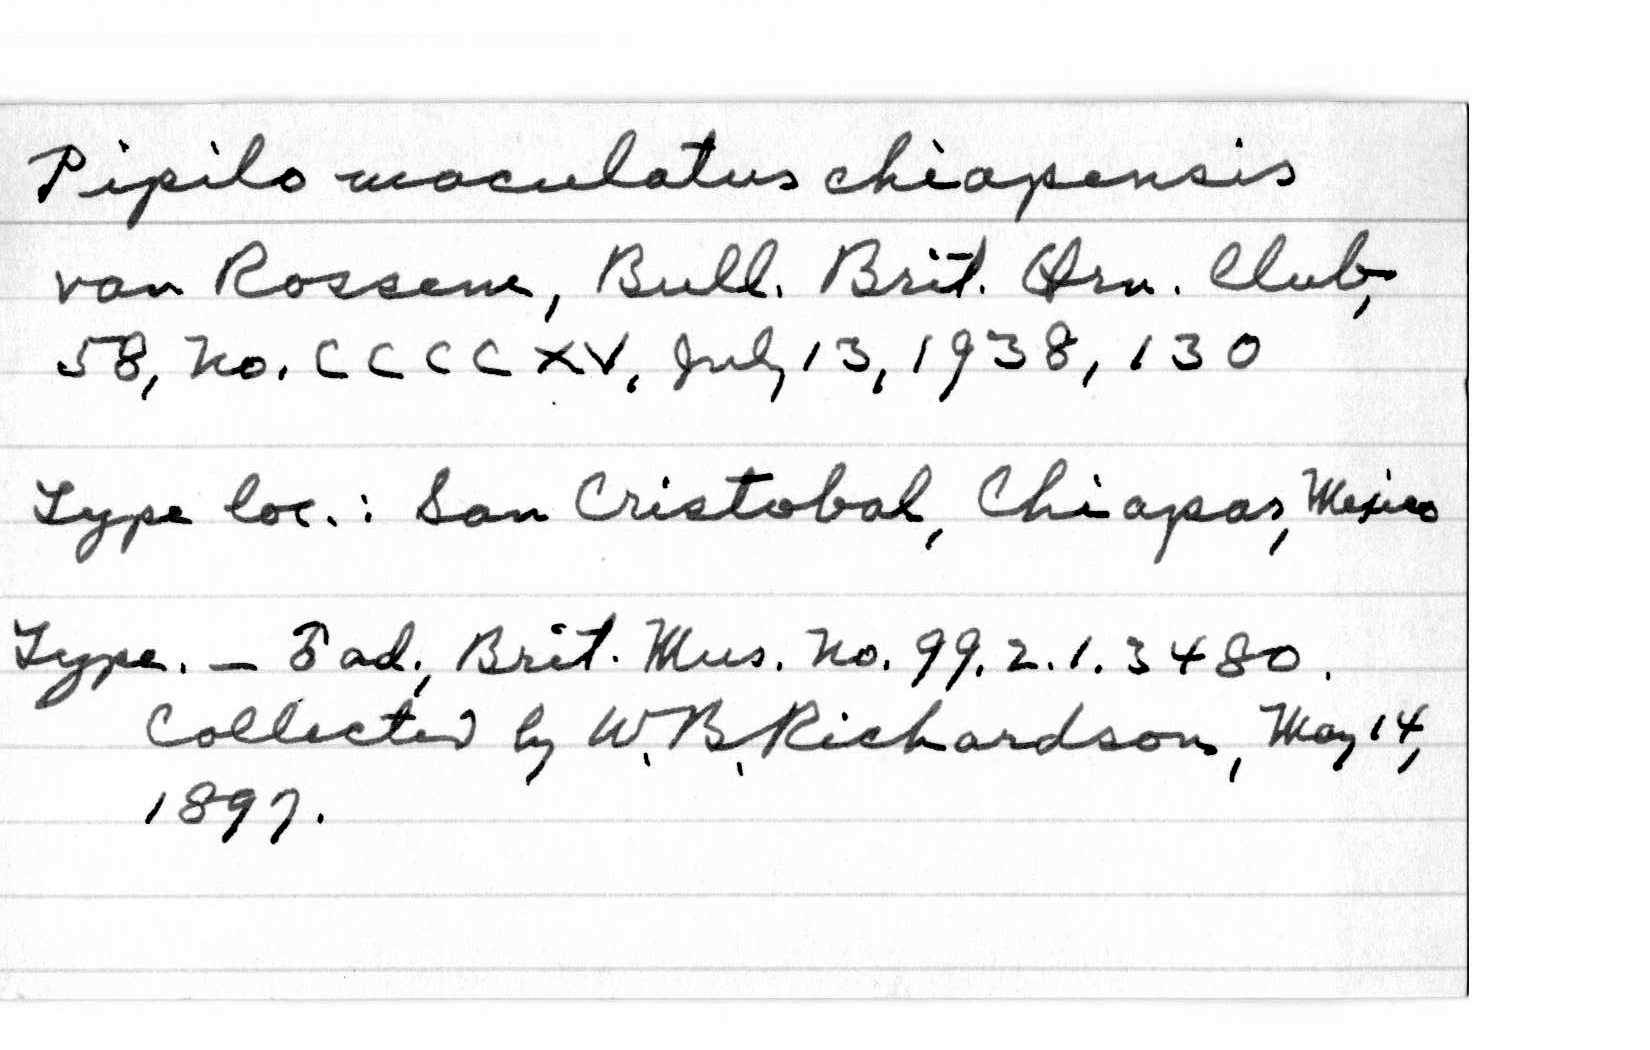 Pipilo maculatus chiapensis
van Rossem, Bull. Brit. Orn. Club,
58, No. CCCCXV, July 13, 1938, 130
Type loc.: San Cristobal, Chiapas, Mexico
Type. — ♂ ad., Brit. Mus. No. 99.2.1.3480.
Collected by W. B. Richardson, May 14,
1897.